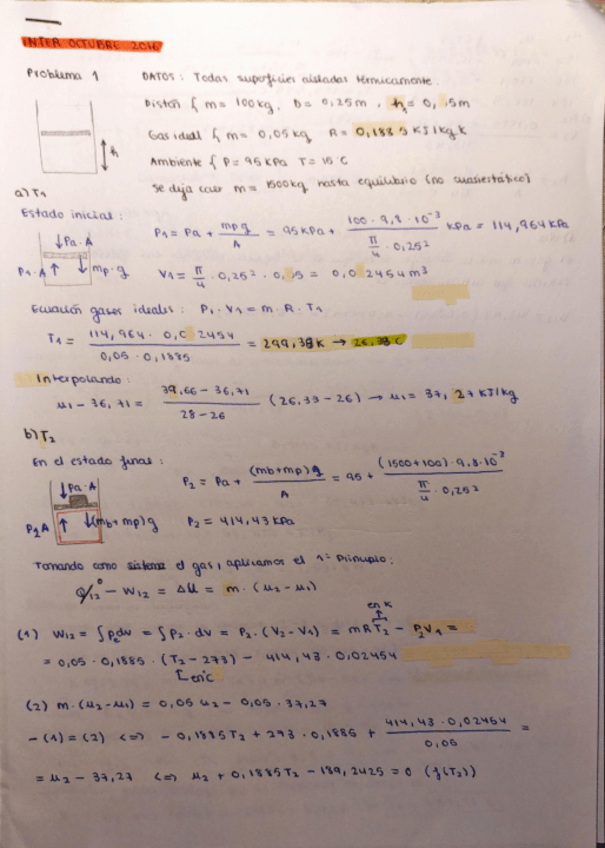 INTER OCTUBRE 2016
Problema 1 DATOS: Todas superficies aisladas térmicamente.
Pistón { m = 100kg, D = 0,25m, h₁ = 0,5m
Gas ideal { m = 0,05kg R = 0,1885 KJ/kgK
Ambiente { P = 95 kPa T = 15°C
Se deja caer m = 1500kg hasta equilibrio (no cuasiestático)
h
a) T₁
Estado inicial:
P₁ = Pa + mp g / A = 95 kPa + 100 · 9,8 · 10⁻³ / (π/4 · 0,25²) kPa = 114,964 kPa
↓Pa·A
P₁·A ↑ ↓mp·g
V₁ = π/4 · 0,25² · 0,5 = 0,02454 m³
Ecuación gases ideales: P₁ · V₁ = m · R · T₁
T₁ = 114,964 · 0,02454 / 0,05 · 0,1885 = 299,38K → 26,38°C
Interpolando:
u₁ - 36,71 = 39,66 - 36,71 / 28 - 26 (26,39 - 26) → u₁ = 37,27 KJ/kg
b) T₂
En el estado final:
P₂ = Pa + (mb+mp)g / A = 95 + (1500+100) · 9,8 · 10⁻³ / (π/4 · 0,25²)
↓Pa·A
P₂A ↑ ↓(mb+mp)g
P₂ = 414,43 kPa
Tomando como sistema el gas, aplicamos el 1er Principio:
Q₁₂⁰ - W₁₂ = ΔU = m · (u₂ - u₁)
en K
(1) W₁₂ = ∫Pe dv = ∫P₂ · dv = P₂ · (V₂ - V₁) = mRT₂ - P₂V₁ =
= 0,05 · 0,1885 · (T₂ - 273) - 414,43 · 0,02454
en °C
(2) m · (u₂ - u₁) = 0,05 u₂ - 0,05 · 37,27
-(1) = (2) <=> - 0,1885T₂ + 273 · 0,1885 + 414,43 · 0,02454 / 0,05 =
= u₂ - 37,27 <=> u₂ + 0,1885T₂ - 189,2425 = 0 (f(T₂))